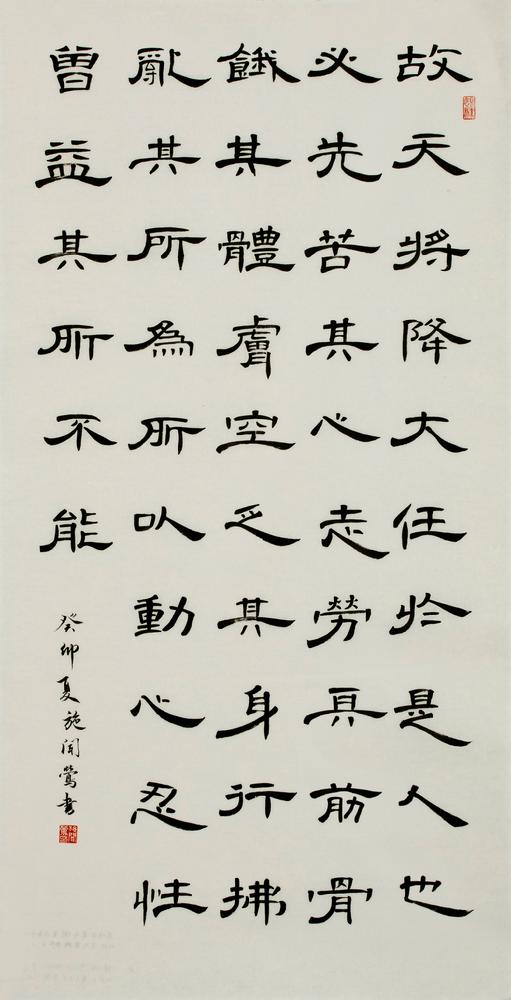 故天將降大任於是人也
必先苦其心志勞其筋骨
餓其體膚空乏其身行拂
亂其所為所以動心忍性
曾益其所不能
癸卯夏施闻莺书